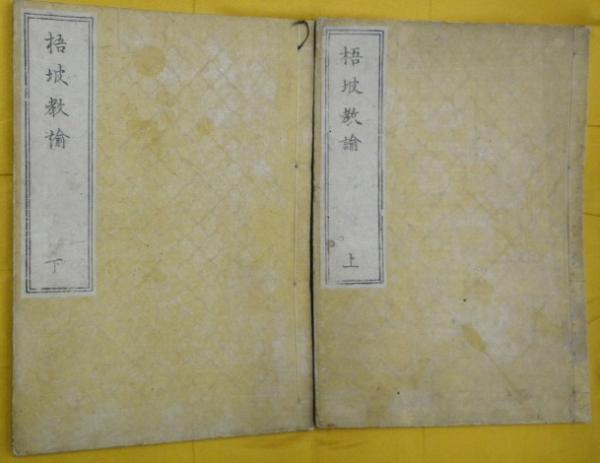 梧坡教諭 上
梧坡教諭 下